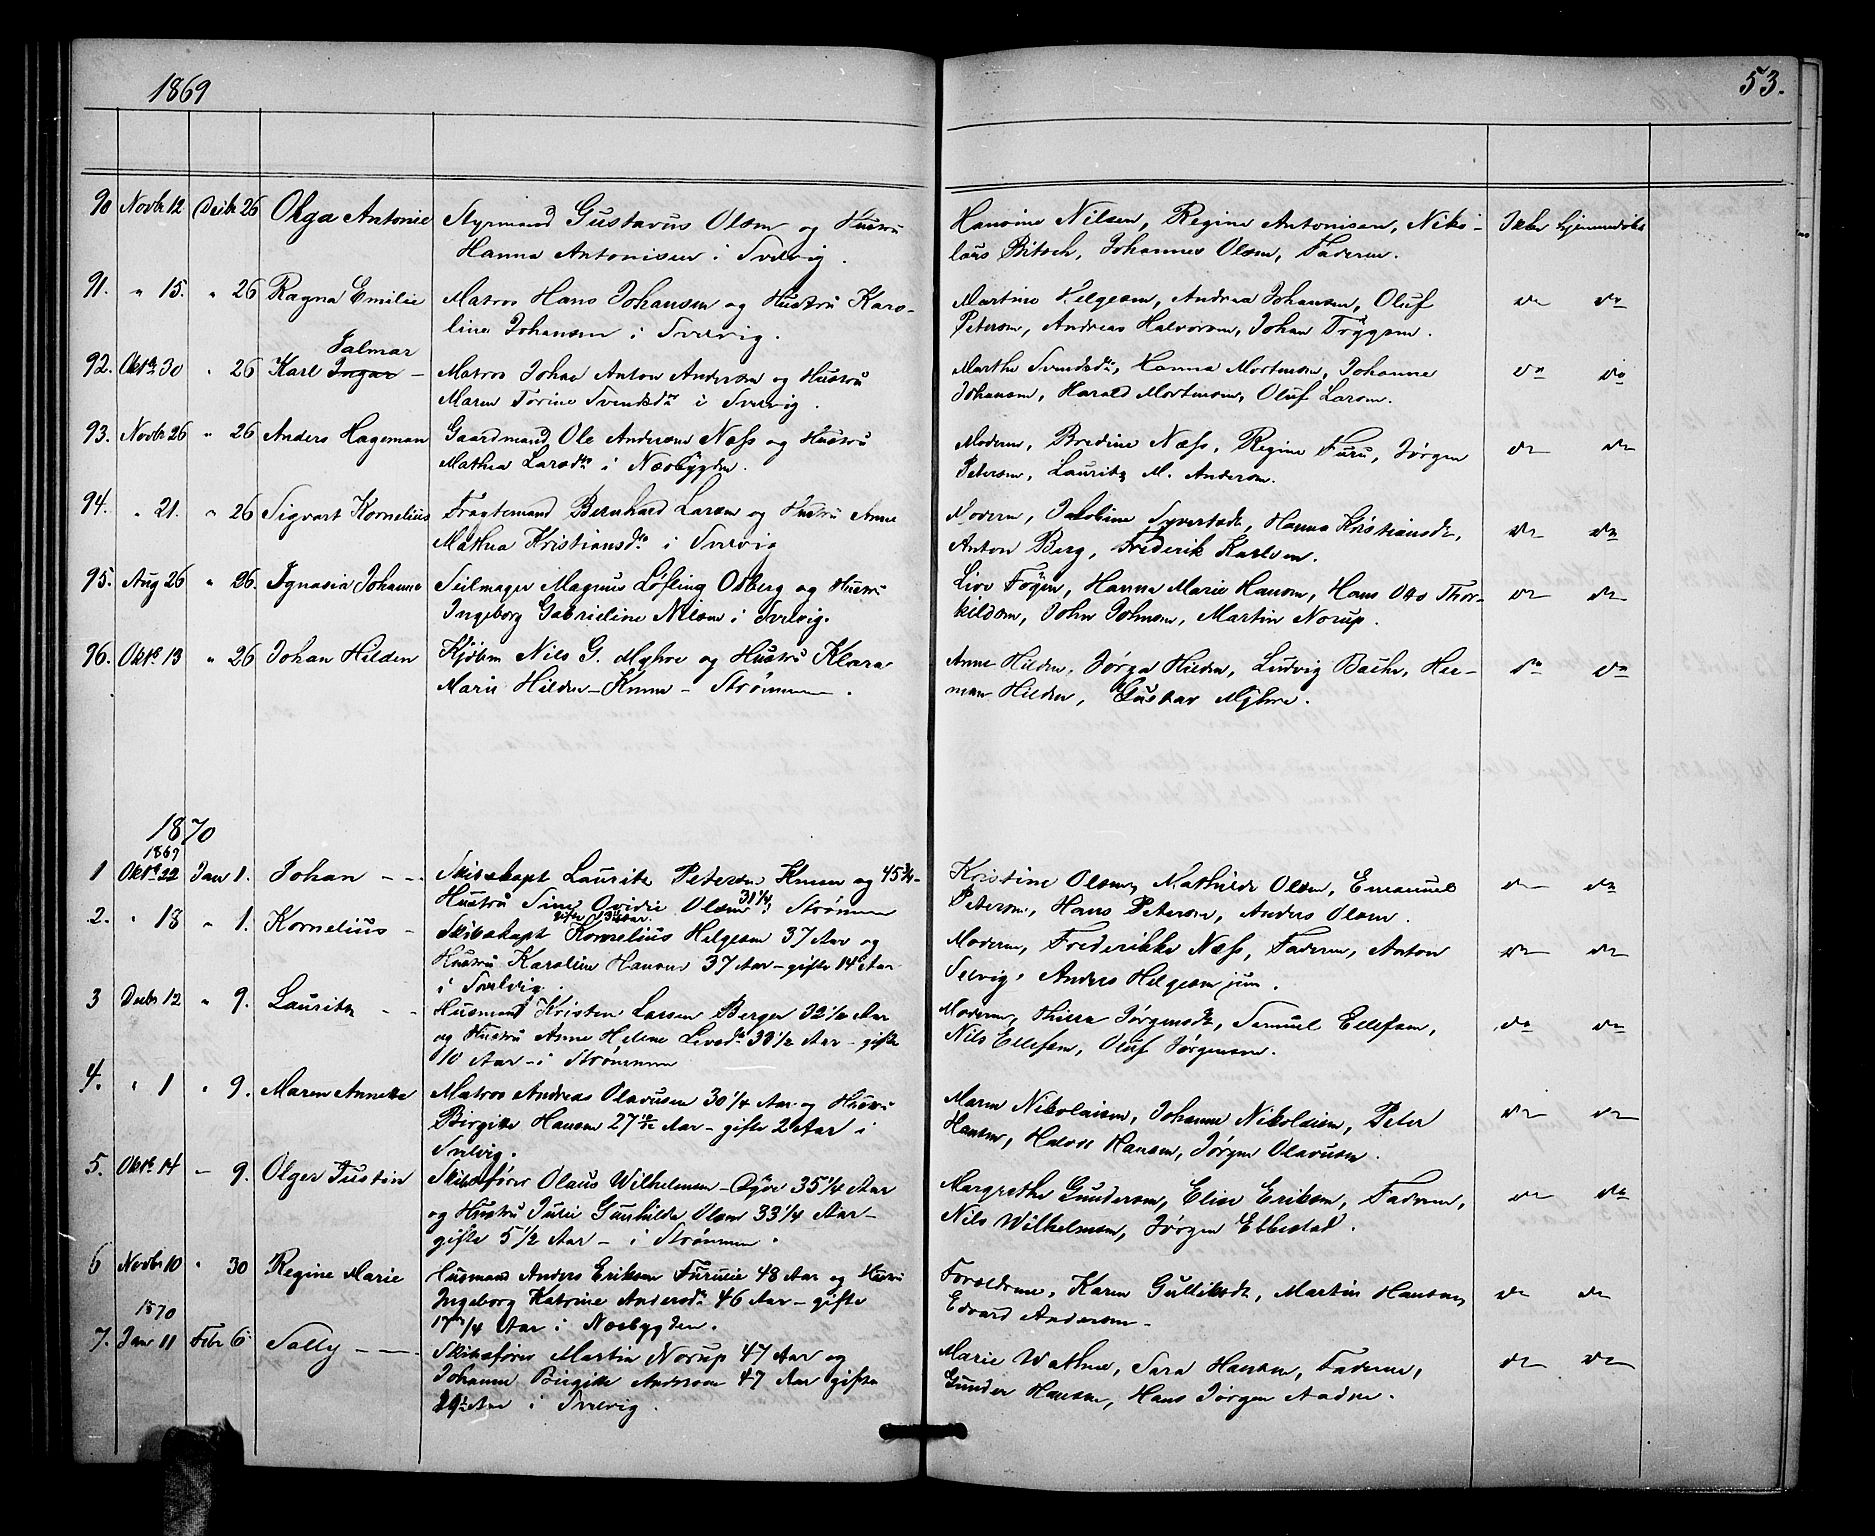 1869
53.
90 Novbr 12 Decbr 26 Olga Antonie Styrmand Gustavus Olsen og Hustru Hansine Nilsen, Regine Antonisen, Niko- Ikke hjemmedøbt
Hanna Antonisen i Svelvig. lais Bitsch, Johannes Olsen, Faderen.
91. " 15. " 26 Ragna Emilie Matros Hans Johansen og Hustru Karo- Martine Helgesen, Andrea Johansen, Oluf do do
line Johansen i Svelvig. Petersen, Andreas Halvorsen, Johan Tryggsen.
Jalmar
92. Oktr 30 " 26 Karl Ingar – Matros Johan Anton Andersen og Hustru Marthe Svendsdr, Hanna Mortensen, Johanne do do
Maren Torine Svendsdr i Svelvig. Johansen, Harald Mortensen, Oluf Larsen.
93. Novbr 26 " 26 Anders Hageman Gaardmand Ole Andersen Næss og Hustru Moderen, Bredine Næss, Regine Furu, Jørgen do do
Mathea Larsdr i Nesbygden. Petersen, Lauritz M. Andersen.
94. " 21. " 26 Sigvart Kornelius Fragtemand Bernhard Larsen og Hustru Anne Moderen, Jakobine Syvertsdr, Hanna Kristiansdr, do do
Mathea Kristiansdr i Svelvig Anton Berg, Frederik Karlsen.
95. Aug 26 " 26. Ignasia Johanne Seilmager Magnus Løfling Osberg og Hustru Live Føyen, Hanna Marie Hansen, Hans Otto Thor- do do
Ingeborg Gabrieline Nilsen i Svelvig. kildsen, John Johnsen, Martin Norup.
96. Oktr 13 " 26 Johan Hilden Kjøbm Nils G. Myhre og Hustru Klara Anne Hilden, Jørgen Hilden, Ludvig Bache, Her- do do
Marie Hilden – Knem – Strømmen. man Hilden, Gustav Myhre.
1870
1869
1 Oktr 22 Jan 1. Johan – – Skibskapt Lauritz Petersen Knem og 45 3/4 – Kristine Olsen, Mathilde Olsen, Emanuel do do
Hustru Sine Ovidie Olsen 31 1/4 i Strømmen Petersen, Hans Petersen, Anders Olsen.
gifte 13 Aar.
2. " 18 " 1. Kornelius – Skibskapt Kornelius Helgesen 37 Aar og Moderen, Frederikke Næss, Faderen, Anton do do
Hustru Karoline Hansen 37 Aar – gifte 14 Aar Selvig, Anders Helgesen jun.
i Svelvig.
3 Decbr 12 " 9. Lauritz – – Husmand Kristen Larsen Berger 32 1/2 Aar Moderen, Jørgensdr, Samuel Ellefsen, do do
og Hustru Anne Helene Livsdr 38 1/2 Aar – gifte Nils Ellefsen, Oluf Jørgensen.
10 Aar – i Strømmen
4. " 1 " 9. Maren Annette Matros Andreas Olavusen 30 1/4 Aar og Hustru Maren Nikolaisen, Johanne Nikolaisen, Peter do do
Birgitte Hansen 27 Aar – gifte 2 Aar i Hansen, Halvor Hansen, Jørgen Olavusen.
Svelvig.
5. Oktr 14 – 9. Olger Justin Skibsfører Olaus Wilhelmsen – Øyvr 35 1/4 Aar Margrethe Gundersen, Elise Eriksen, Faderen, do do
og Hustru Julie Gunhilda Olsen 33 1/4 Aar – Nils Wilhelmsen, Jørgen Ebbestad.
gifte 5 1/2 Aar – i Strømmen.
6 Novbr 10 " 30 Regine Marie Husmand Anders Eriksen Furulie 48 Aar og Hustru Forældrene, Karen Gulliksdr, Martin Hansen, do do
Ingeborg Katrine Andersdr 46 Aar – gifte Edvard Andersen –
17 3/4 Aar i Nesbygden.
1870
7. Jan 11 Febr 6. Sally – – – Skibsfører Martin Norup 47 Aar og Marie Wathne, Sara Hansen, Faderen, do do
Johanne Birgitte Andersen 47 Aar gifte Gunder Hansen, Hans Jørgen Aadne.
Aar i Svelvig.